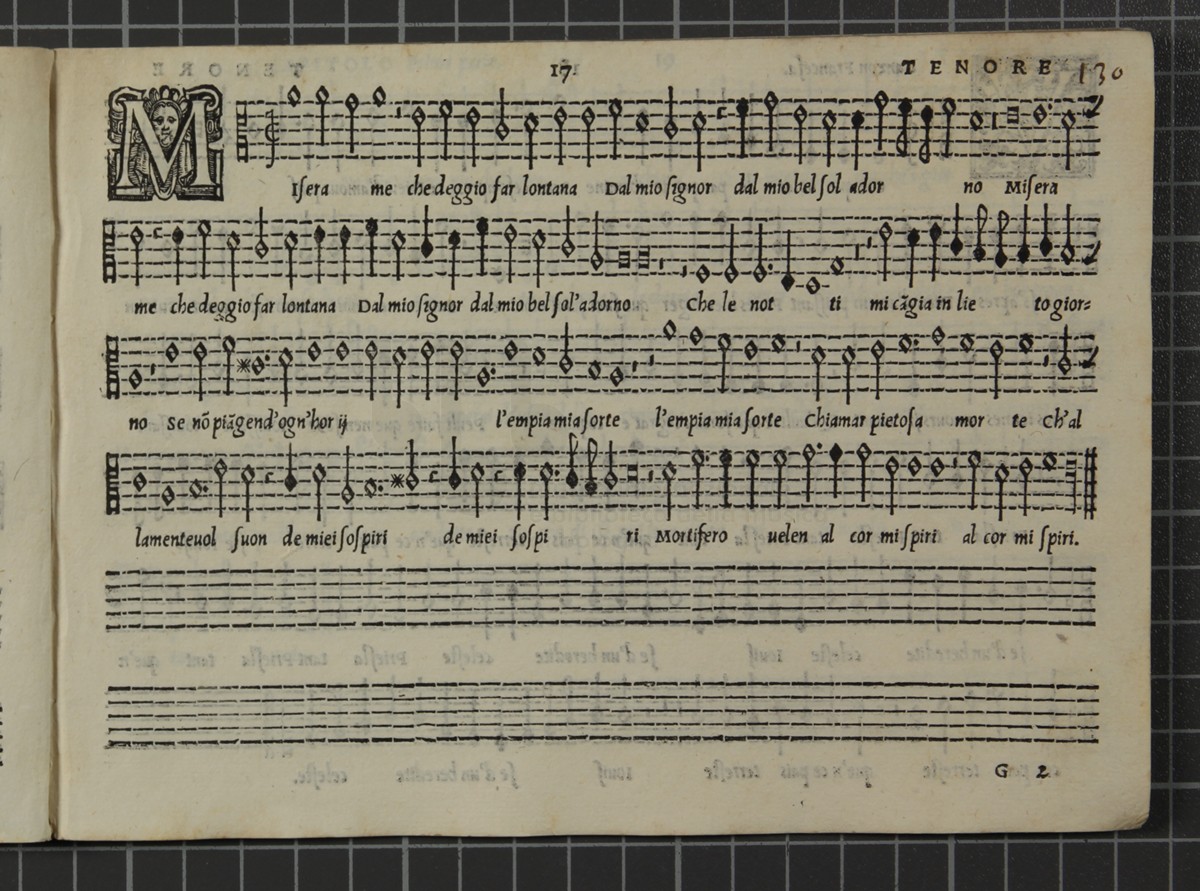 17 TENORE 130
MIsera me che deggio far lontana Dal mio signor dal mio bel sol ador no Misera
me che deggio far lontana Dal mio signor dal mio bel sol'adorno Che le not ti mi cãgia in lie to gior=
no Se nõ piãgend'ogn'hor ij l'empia mia sorte l'empia mia sorte Chiamar pietosa mor te Ch'al
lamenteuol suon de miei sospiri de miei sospi ri Mortifero uelen al cor mi spiri al cor mi spiri.
G 2